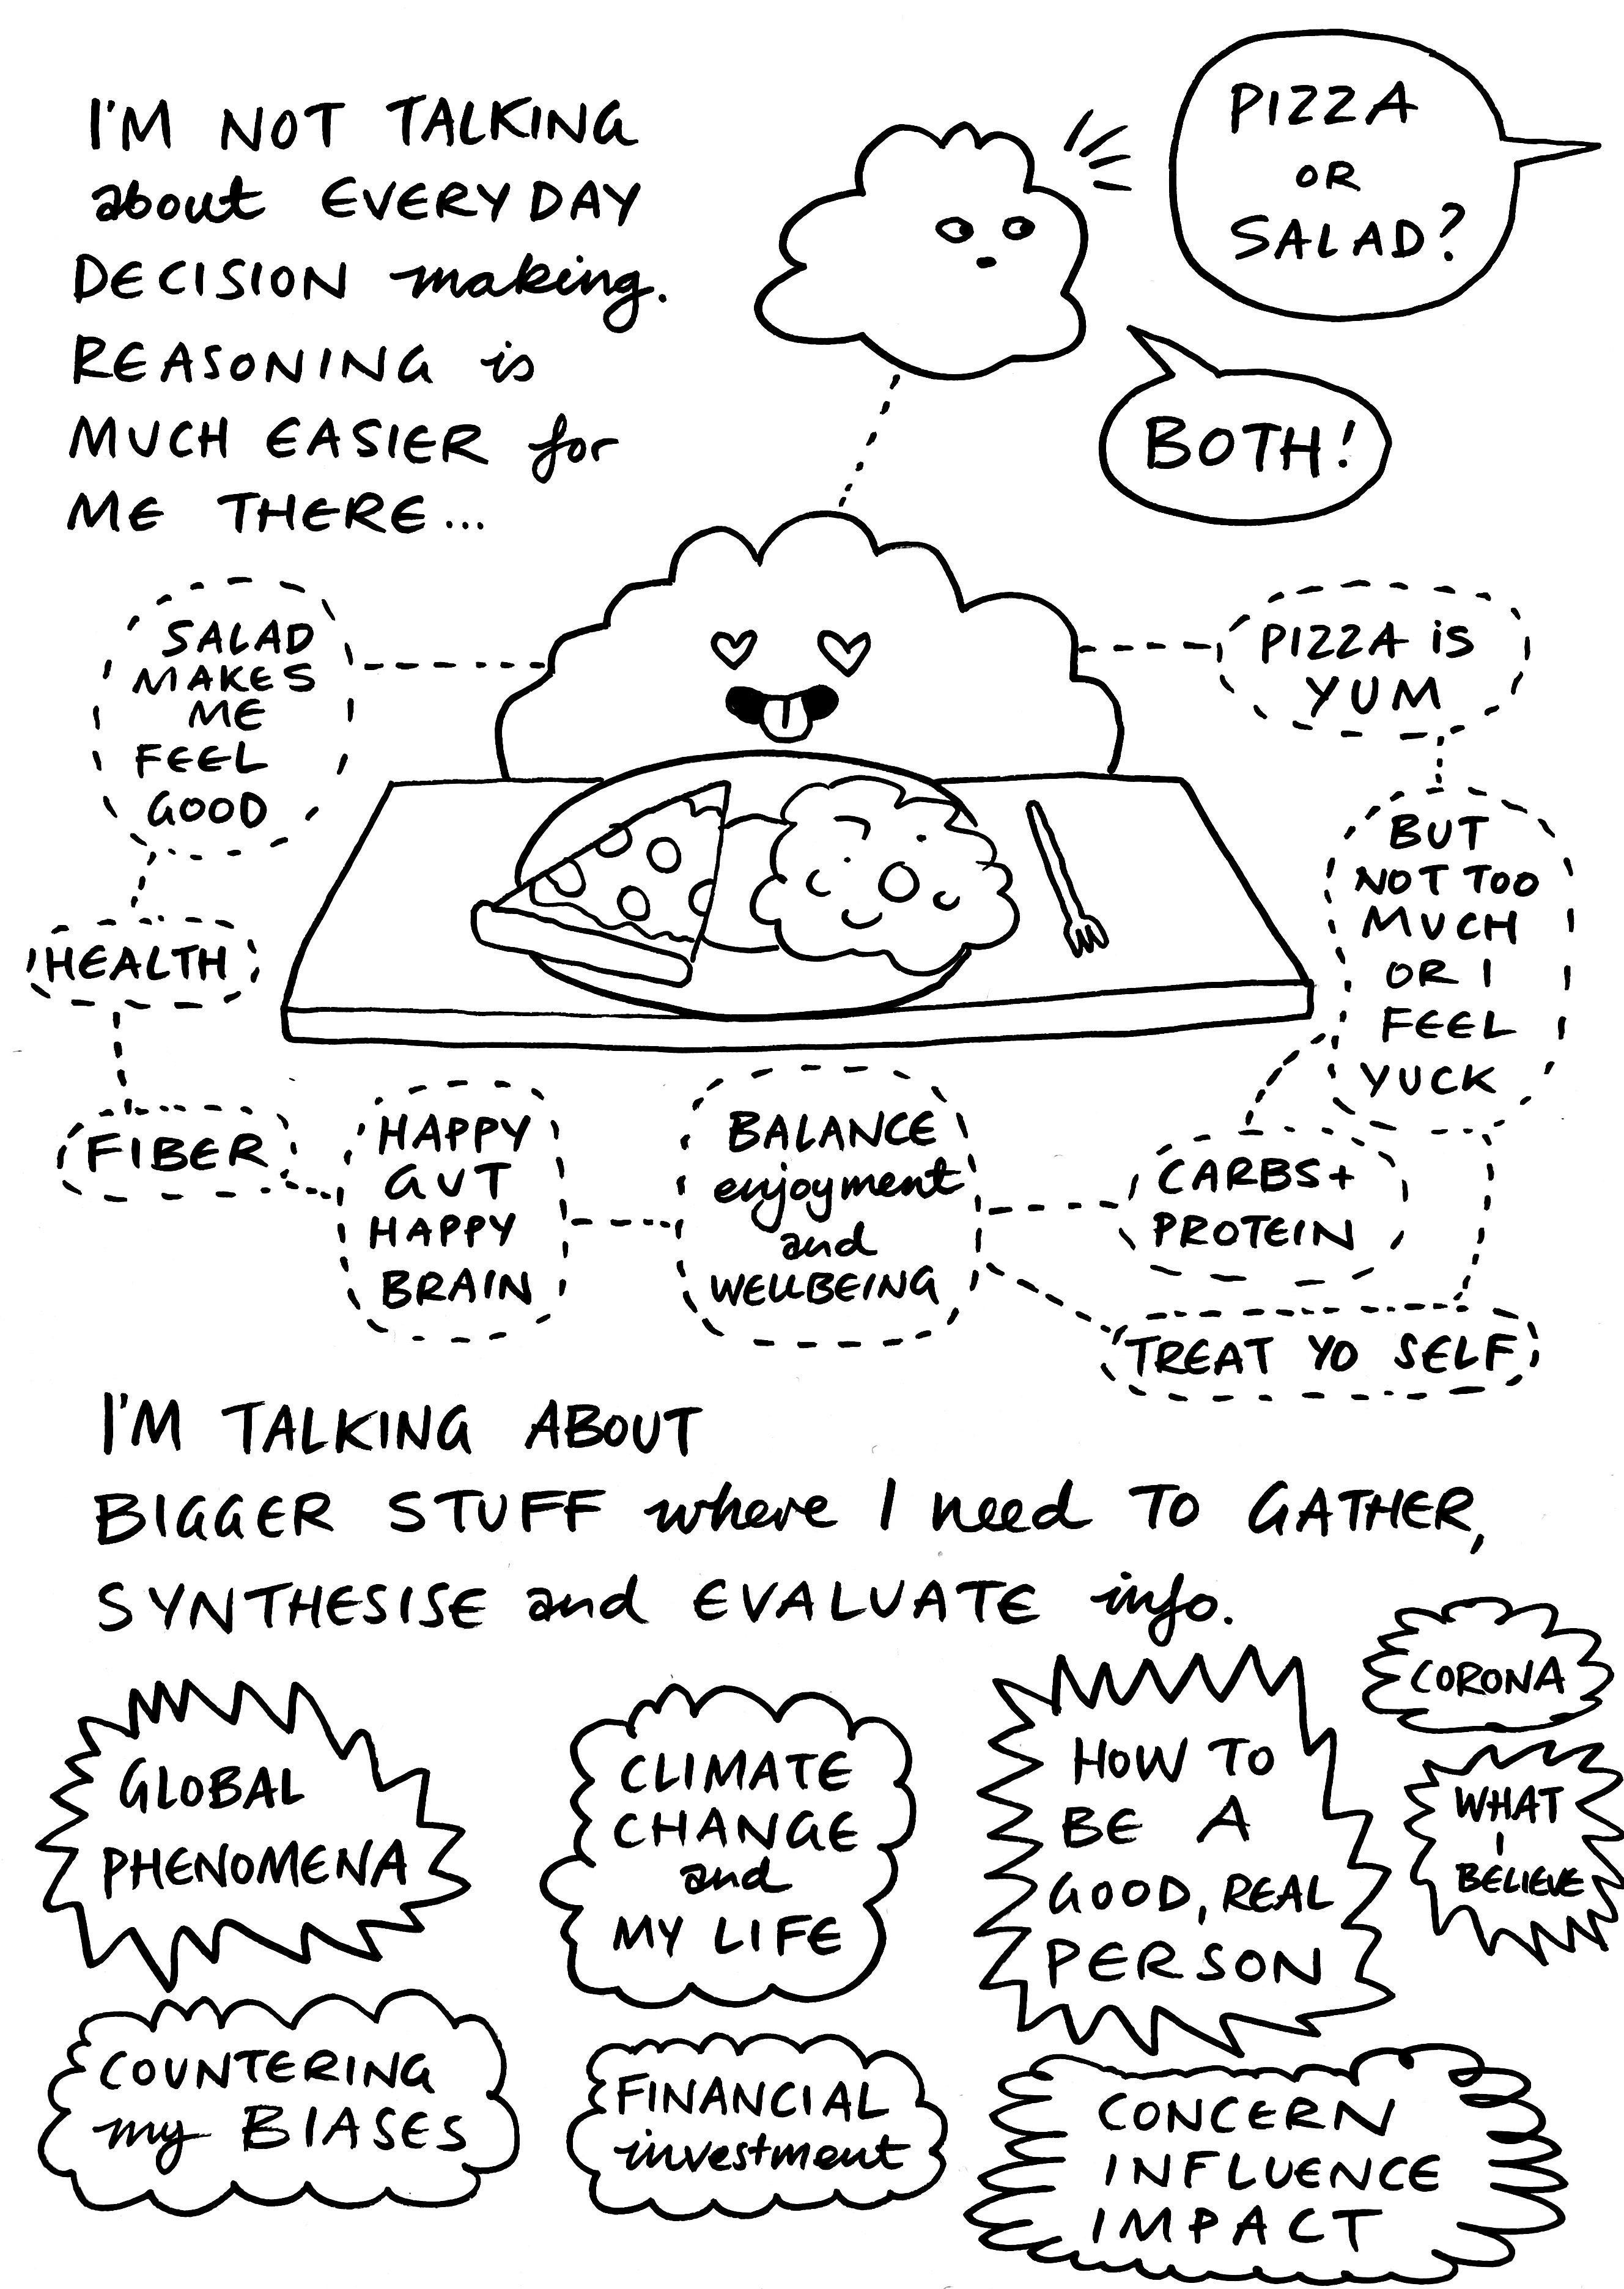 I'M NOT TALKING
about EVERYDAY
DECISION making.
REASONING is
MUCH EASIER for
ME THERE...
PIZZA
OR
SALAD?
BOTH!
SALAD
MAKES
ME
FEEL
GOOD
HEALTH
FIBER
HAPPY
GUT
HAPPY
BRAIN
BALANCE
enjoyment
and
WELLBEING
PIZZA is
YUM
BUT
NOT TOO
MUCH
OR I
FEEL
YUCK
CARBS+
PROTEIN
TREAT YO SELF
I'M TALKING ABOUT
BIGGER STUFF where I need TO GATHER,
SYNTHESISE and EVALUATE info.
GLOBAL
PHENOMENA
CLIMATE
CHANGE
and
MY LIFE
HOW TO
BE A
GOOD, REAL
PERSON
CORONA
WHAT
I
BELIEVE
COUNTERING
my BIASES
FINANCIAL
investment
CONCERN
INFLUENCE
IMPACT